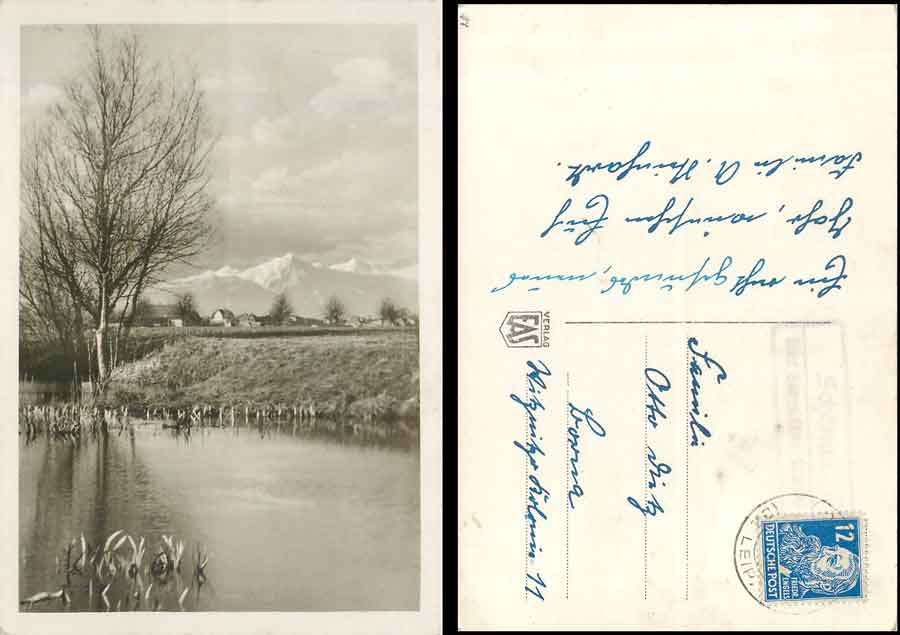 Ein recht gesundes, neues
Jahr, wünschen Euch
Familie A.
Familie
Otto Dietz
Borna
Witznitzer Kolonie 11
VERLAG
EAS
12
DEUTSCHE POST
FRIEDR. ENGELS
LEIPZ